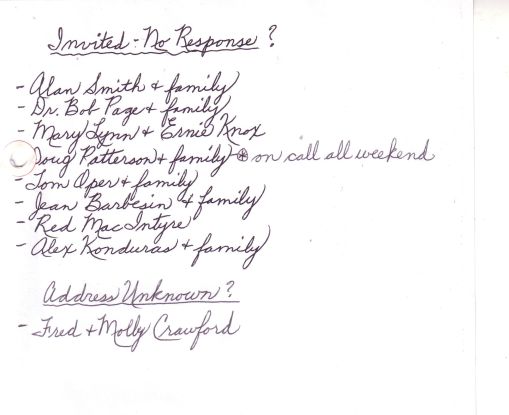 Invited - No Response?
- Alan Smith + family
- Dr. Bob Page + family
- Mary Lynn + Ernie Knox
- Doug Patterson + family ⊛ on call all weekend
- Tom Oper + family
- Jean Barbesin + family
- Red MacIntyre
- Alex Konduras + family
Address Unknown?
- Fred + Molly Crawford